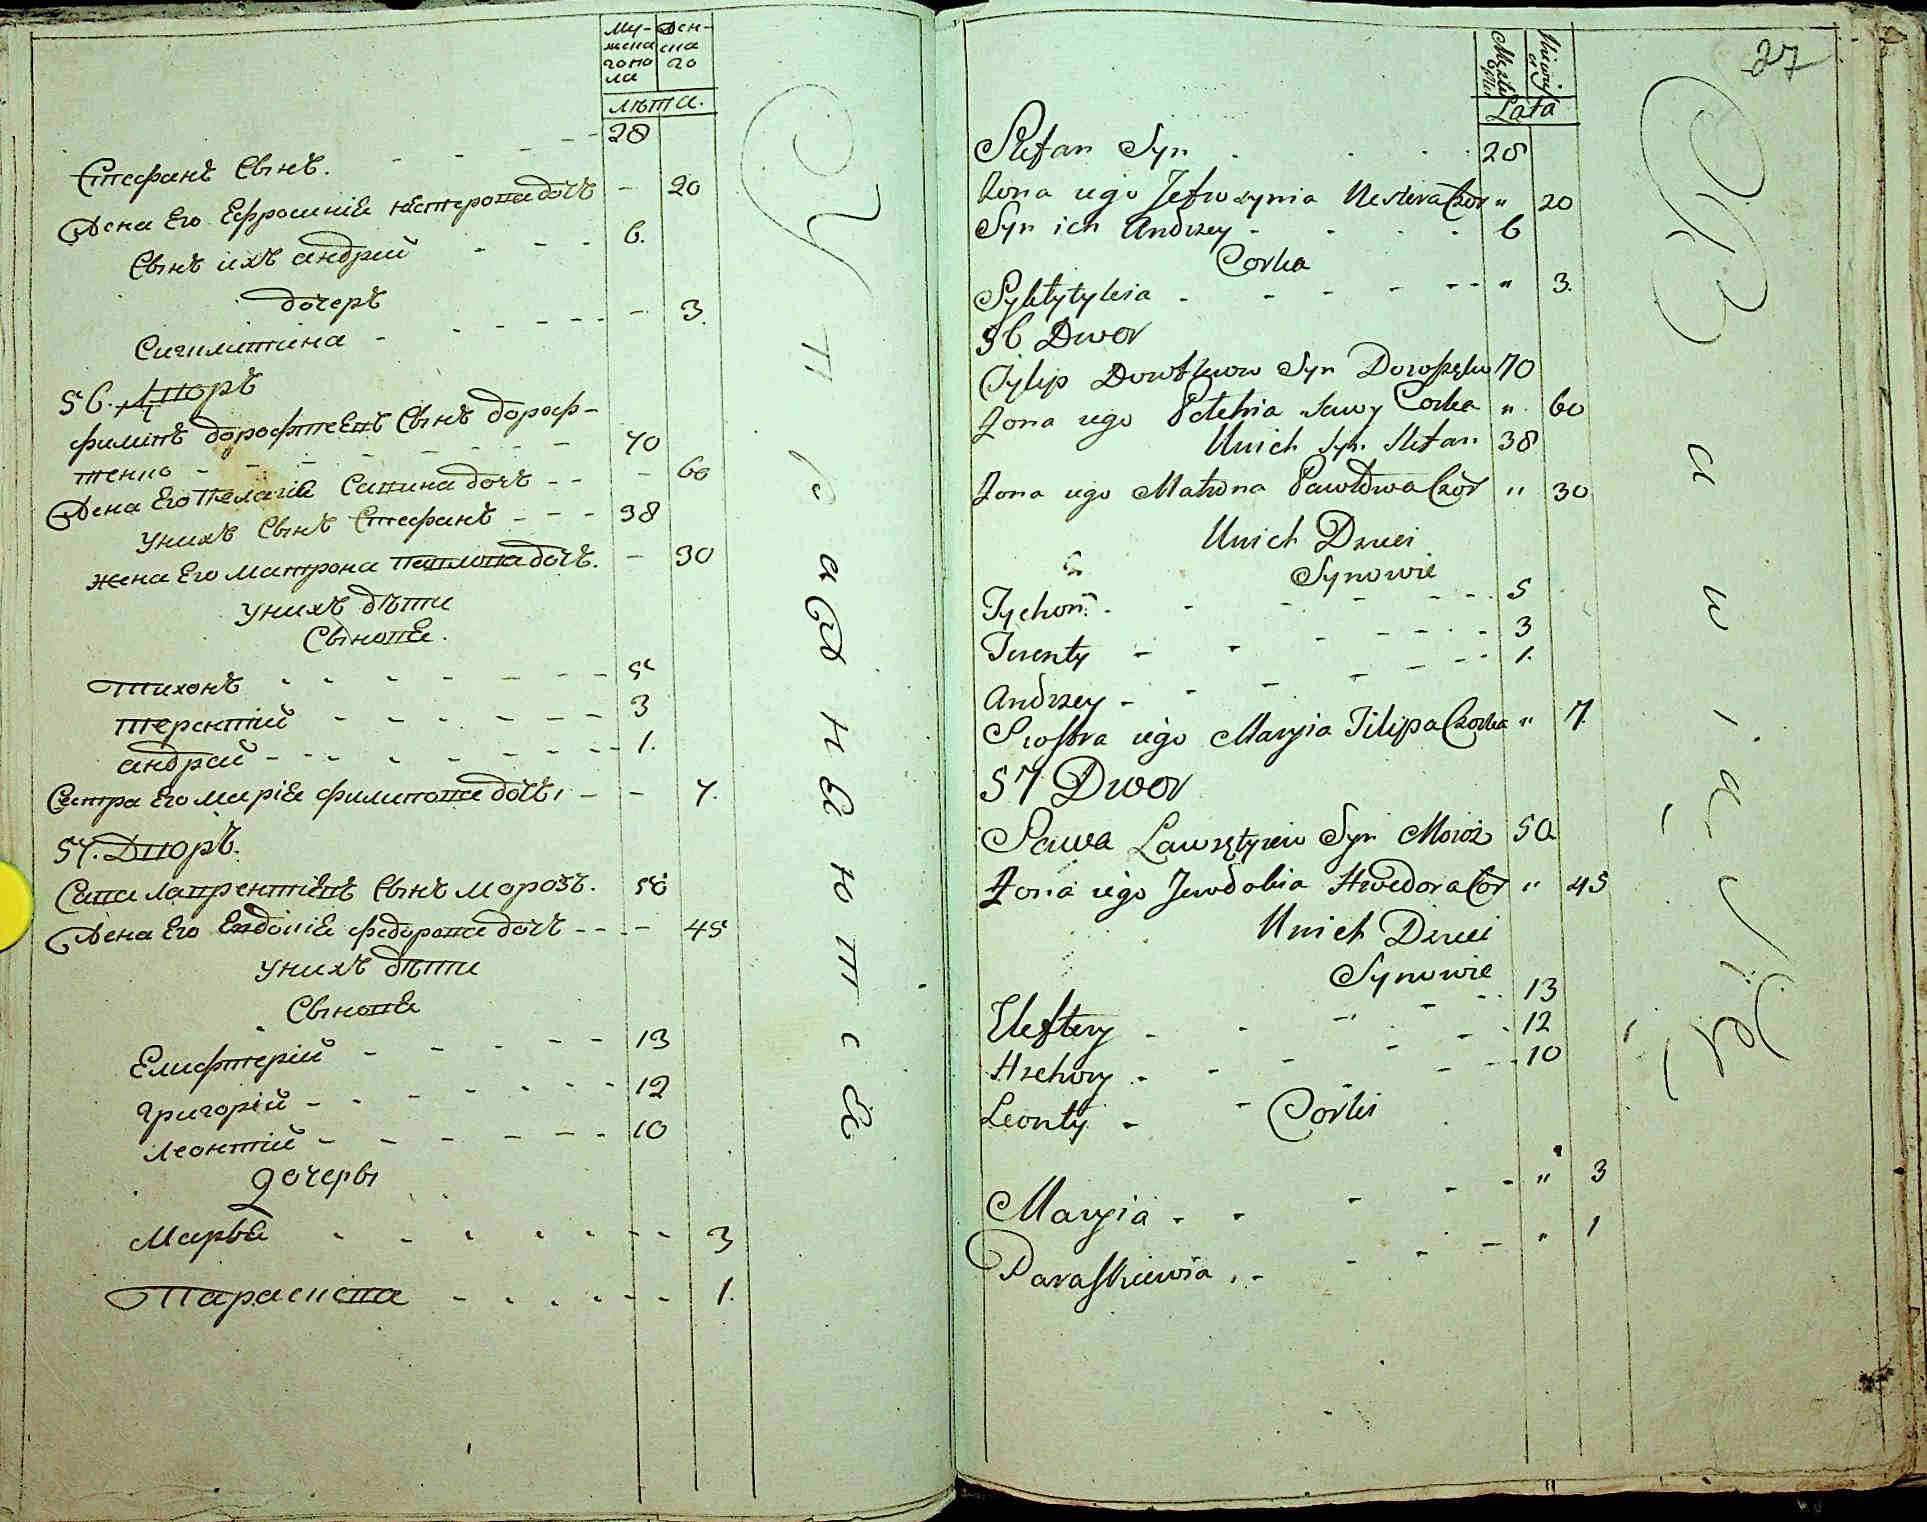 Мужена гопола
Женска го
лѣта.
Стефанъ Сынъ. 28
Жена Его Ефросиніе нестерова дочъ - 20
Сынъ ихъ андрій - - - 6.
дочеръ
Сигклитина - - - 3.
56. Дворъ
филипъ дорофтеевъ Сынъ дороф-
тенко - - - 70
Жена Его Пелагіе Савина дочъ - - - 60
унихъ Сынъ Стефанъ - - - 38
жена Его матрона павлова дочъ. - 30
унихъ дѣти
Сынове.
тихонъ - - - 5
терентій - - - 3
андрій - - - 1.
Сестра Его маріе филипова дочъ, - - 7.
57. Дворъ.
Сава лаврентіевъ Сынъ морозъ. 50
Жена Его Евдокіе федорова дочъ - - - 45
унихъ дѣти
Сынове
Елифтерій - - - 13
Григорій - - - 12
леонтій - - - 10
дочеры
Марье - - - 3
Параскева - - - 1.
Управнеютсе
27
Lata
Stefan Syn 28
Zona iego Jefrozynia Nestera Cor " 20
Syn ich Andrzey - 6
Corka
Synklytykia - - - " 3.
56 Dwor
Fylip Dorofiejow Syn Doroszenko 70
Zona iego Pelehia Sawy Corka " 60
Unich Syn Stefan 38
Zona iego Matrona Pawłowa Cor " 30
Unich Dzieci
Synowie
Tychon - - - 5
Terenty - - - 3
Andrzey - - - 1.
Siostra iego Maryia Filipa Corka " 7.
57 Dwor
Sawa Ławrętyiew Syn Moroz 50
Zona iego Jewdokia Hwedora Cor " 45
Unich Dzieci
Synowie
Eleftery - - - 13
Hrehory - - - 12
Leonty - - - 10
Corki
Maryia - - - " 3
Paraskiewia - - - " 1